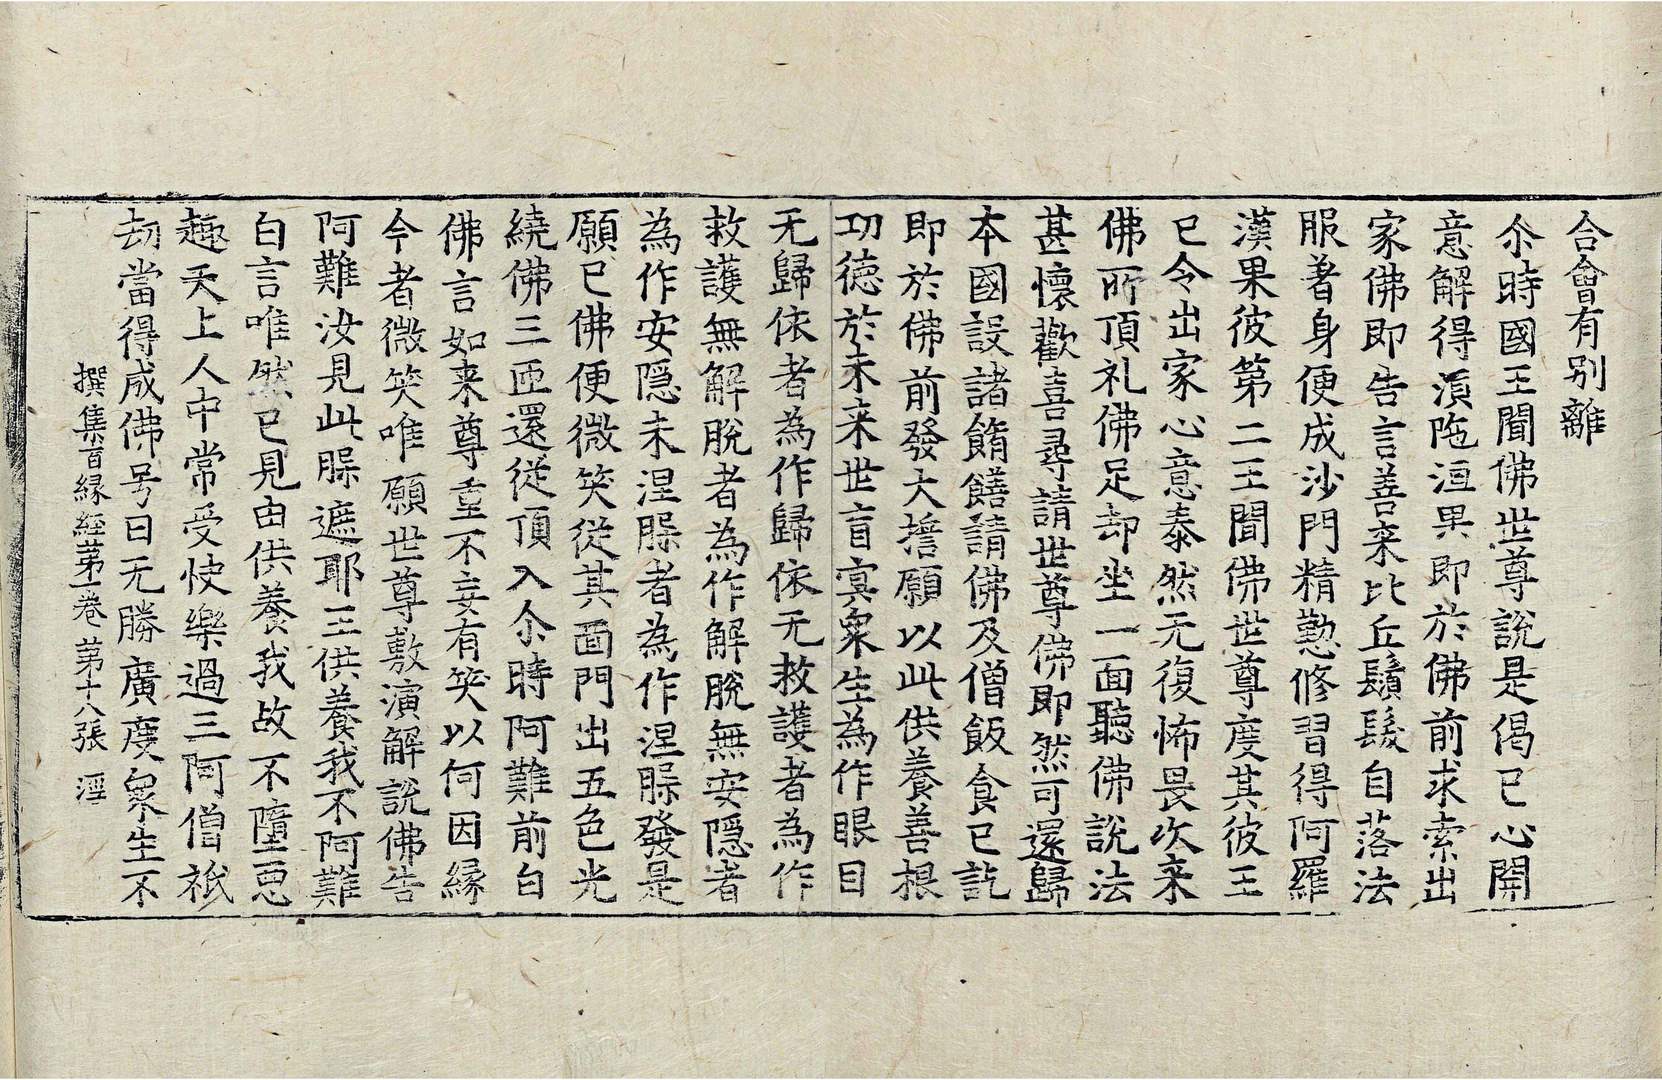 合會有別離
尒時國王聞佛世尊說是偈已心開
意解得湏陁洹果即於佛前求索出
家佛即告言善来比丘鬚髮自落法
服著身便成沙門精懃修習得阿羅
漢果彼第二王聞佛世尊度其彼王
已令出家心意泰然无復怖畏次来
佛所頂礼佛足却坐一面聽佛說法
甚懷歡喜尋請世尊佛即然可還歸
本國設諸餚饍請佛及僧飯食已訖
即於佛前發大擔願以此供養善根
功德於未来世盲冥衆生為作眼目
无歸依者為作歸依无救護者為作
救護無解脫者為作解脫無安隱者
為作安隱未涅槃者為作涅槃發是
願已佛便微笑從其面門出五色光
繞佛三匝還從頂入尒時阿難前白
佛言如来尊重不妄有笑以何因緣
今者微笑唯願世尊敷演解說佛告
阿難汝見此槃遮耶王供養我不阿難
白言唯然已見由供養我故不墮惡
趣天上人中常受快樂過三阿僧祇
劫當得成佛号曰无勝廣度衆生不
撰集百緣經第一卷 第十八張 淫